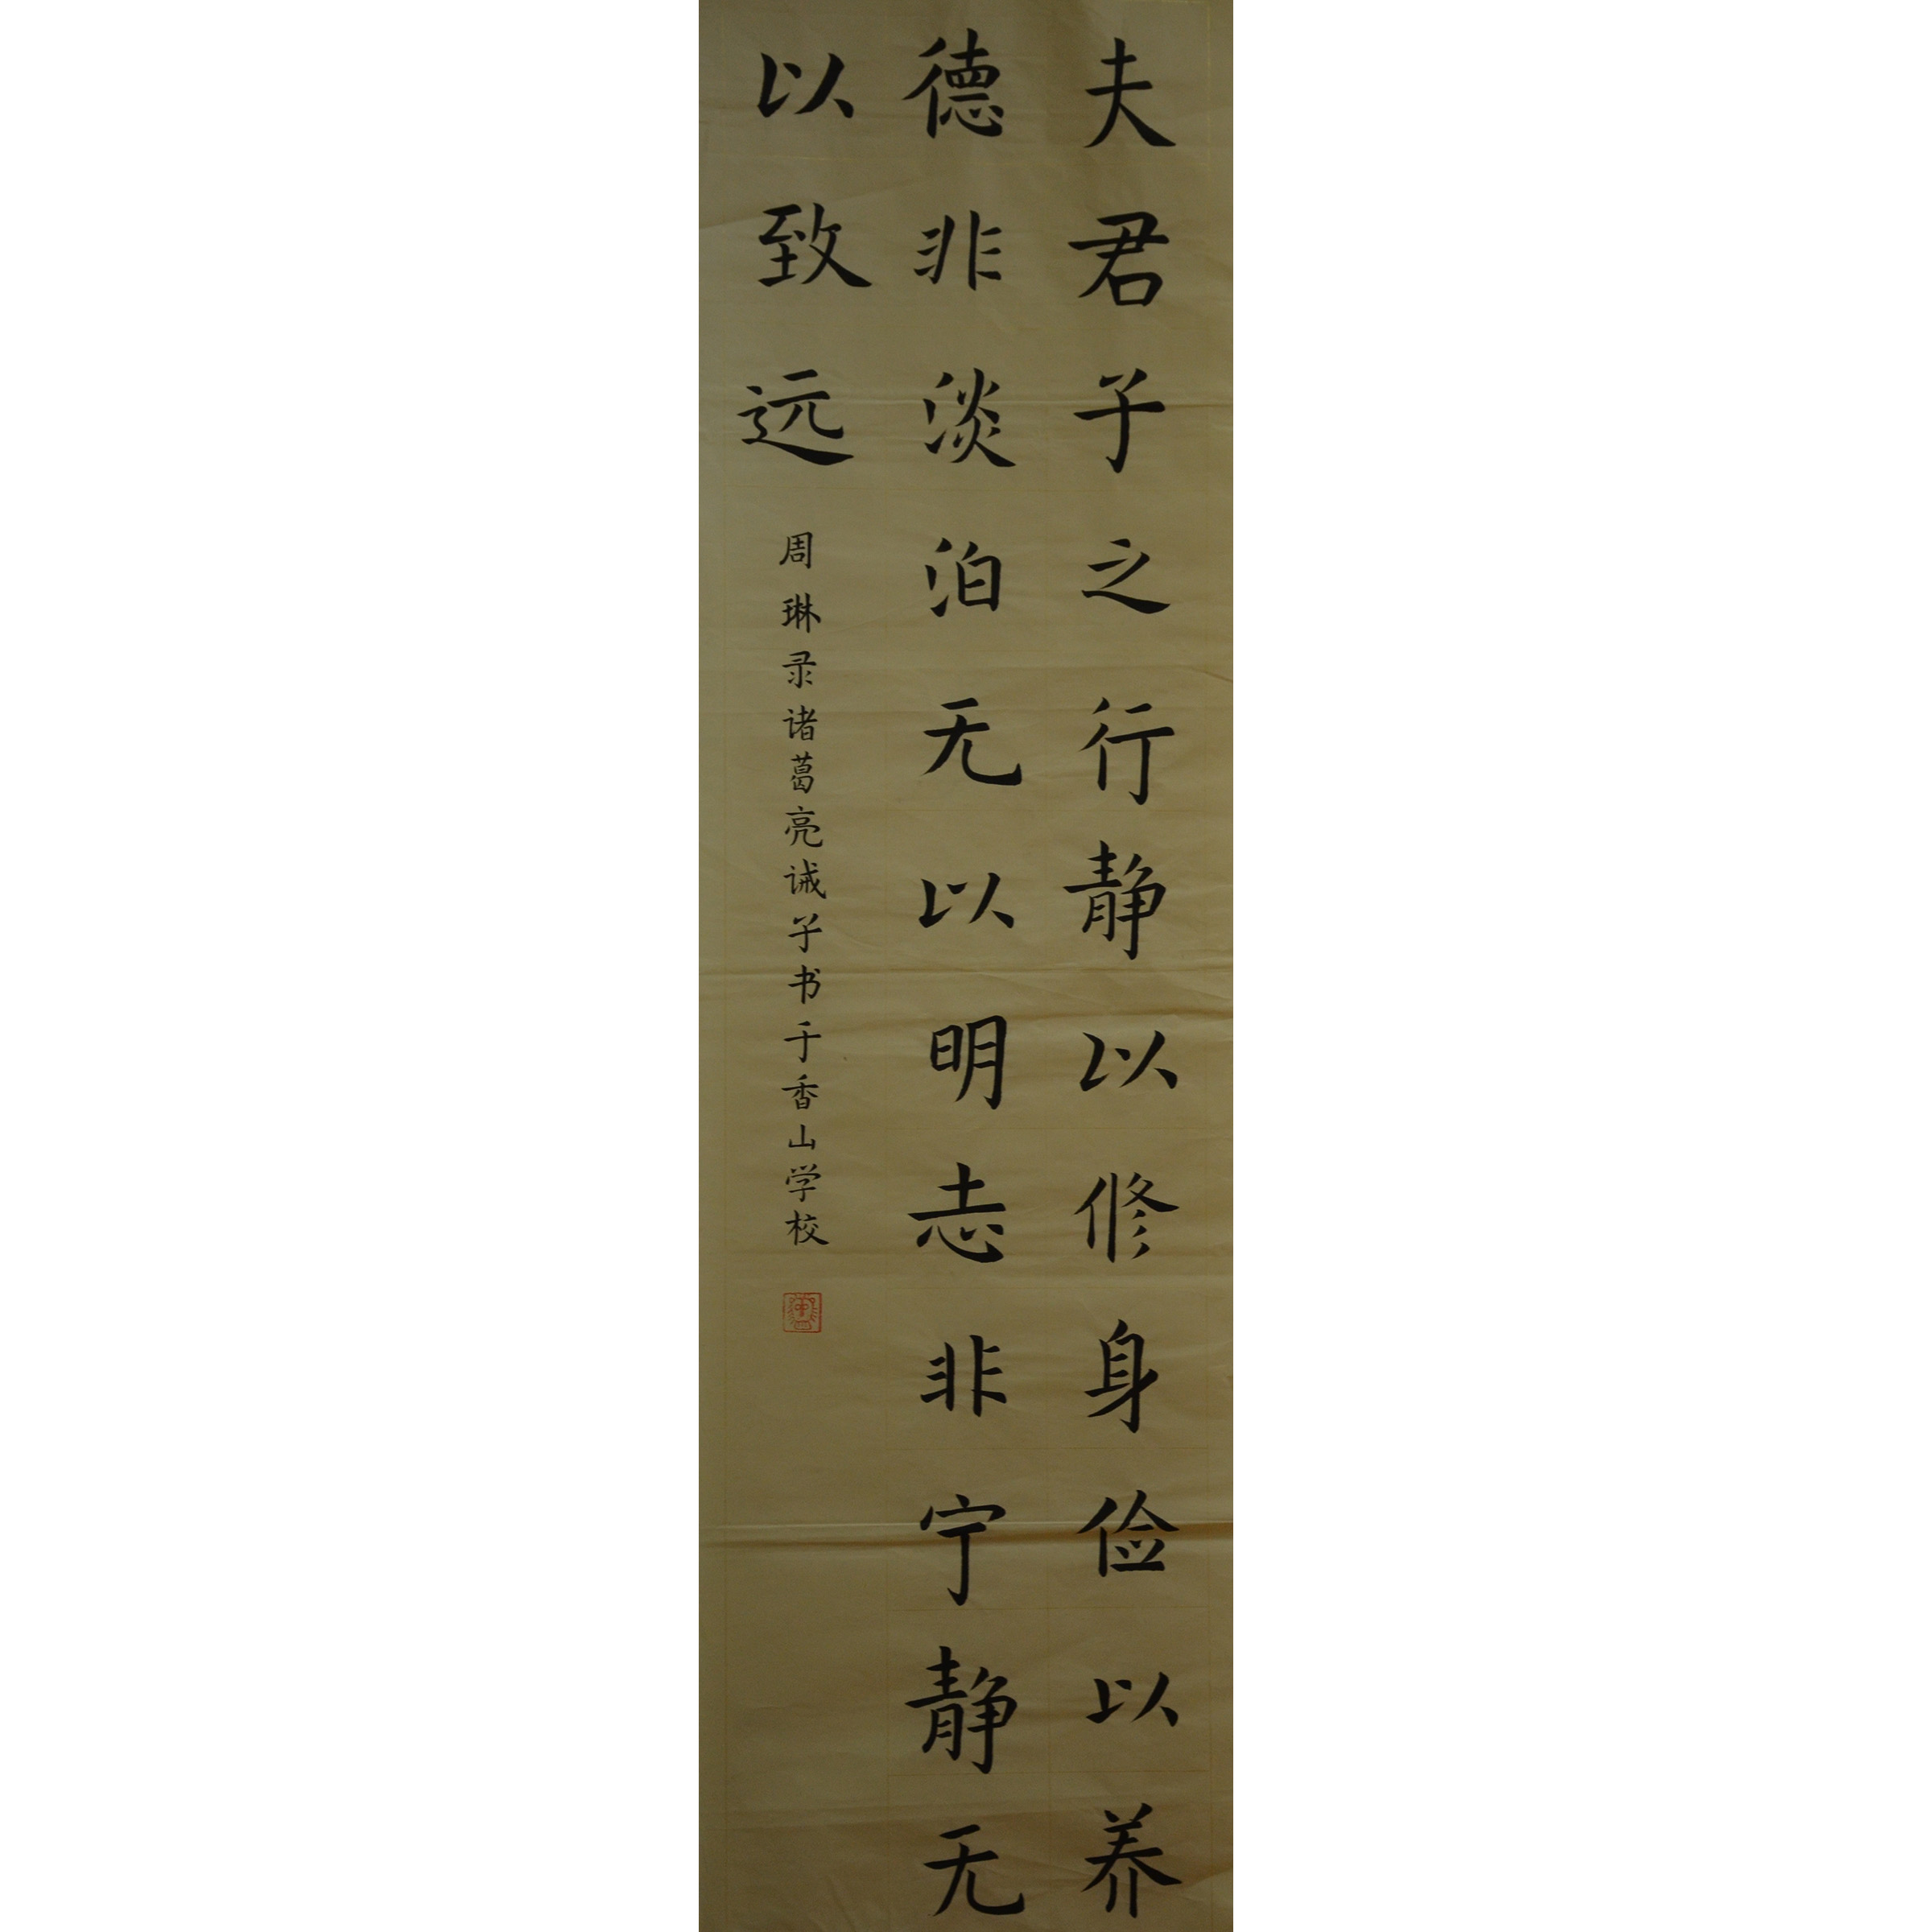 夫君子之行静以修身俭以养
德非淡泊无以明志非宁静无
以致远
周琳录诸葛亮诫子书于香山学校